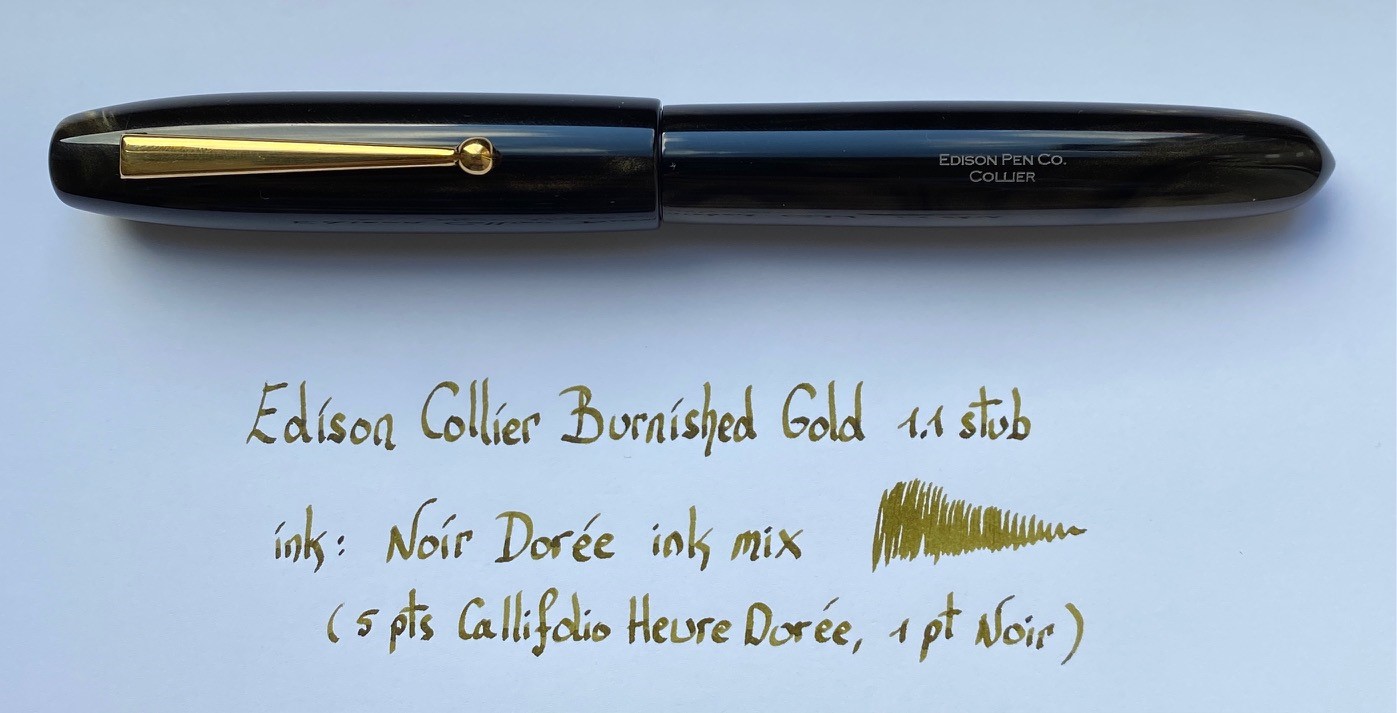 EDISON PEN CO.
COLLIER
Edison Collier Burnished Gold 1.1 stub
ink: Noir Dorée ink mix
(5 pts Callifolio Heure Dorée, 1 pt Noir)